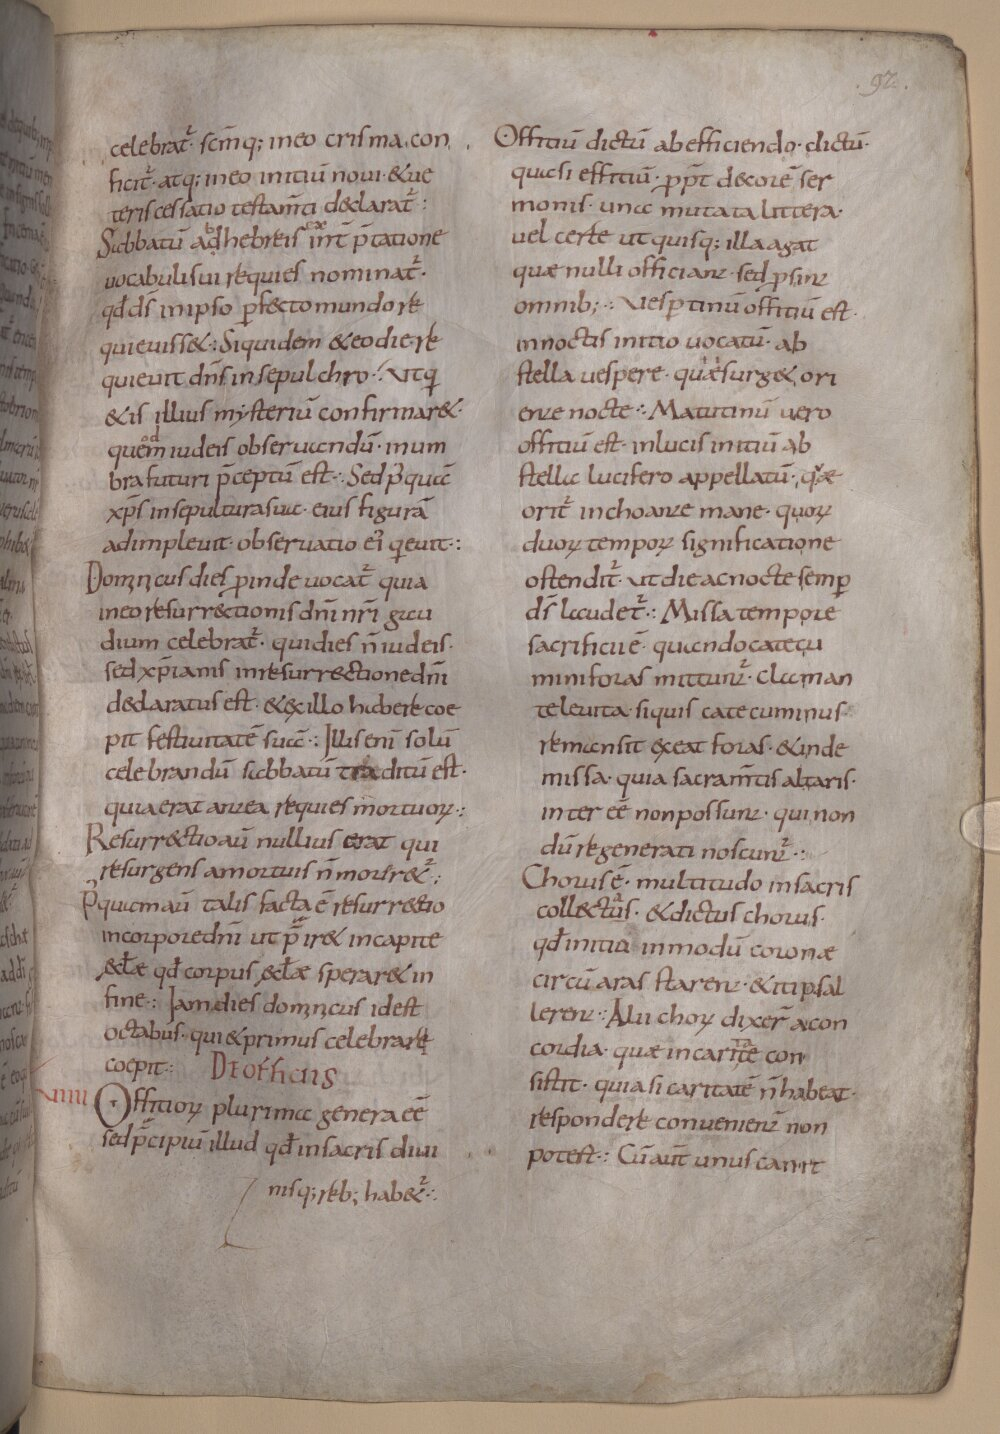 92.
celebrat᷑· scm̄q; ineo crisma.con
ficit᷑· atq; ineo initiū noui· &ue
teris cessatio testam̄ti declarat᷑:
Sabbatū abhebreis int̄ p̄tatione
uocabuli sui requies nominat᷑·
qd̄ dš inipso pfecto mundo re
quieuiss&·: Siquidem &eodie re
quieuit dn̄s insepulchro·: Ut q
&is illius mysteriū confirmar&·
quem iudeis obseruandū· inum
bra futuri p̄ceptū est·: Sed p quā
xp̄s insepultura sua· eius figurā
adimpleuit· obseruatio ei qeuit·:
Domncus dies pinde uocat᷑ quia
ineo resurrectionis dn̄i nr̄i gau
dium celebrat᷑· qui dies n̄ iudeis·
sed xp̄ianis inresurrectione dn̄i
declaratus est· &exillo habere coe
pit festiuitatē suā·: Illis eni solū
celebrandū sabbatū traditū est·
quia erat antea requies mortuoꝝ·:
Resurrectio aū nullius erat qui
resurgens amortuis n̄ morer&᷑·;
Pquam aū talis facta ē resurrectio
incorpore dn̄i ut p̄ir& incapite
eccƚae qd̄ corpus eccƚae sperar& in
fine·: Iam dies domncus idest
octabus· qui &primus celebrare
coepit·: De officiis
XIIII
Offitioꝝ plurima genera eē
sed p̄cipiū illud qd̄ insacris diui
nisq; reb; hab&᷑·:
Offitiū dictū abefficiendo· dictū·
quasi effitiū· pp̄t decorē ser
monis· una mutata littera·
uel certe ut quisq; illa agat
quae nulli officiant· sed psint
omnib;·: Uesptinū offitiū est·
innoctis initio uocatū· ab
stella uespere· quae surg& ori
ente nocte·: Matutinū uero
offitiū est· inlucis initiū ab
stella lucifero appellatū· quae
orit᷑ inchoante mane· quoꝝ
duoꝝ tempoꝝ significatione
ostendit᷑· ut die ac nocte semp
dš laudet᷑·: Missa tempore
sacrificii ē· quando catecu
mini foras mittunt᷑· claman
te leuita· siquis catecuminus
remansit exeat foras· &inde
missa· quia sacram̄tis altaris·
inter eē non possunt· qui non
dū regenerati noscunt᷑·:
Chorus ē· multitudo insacris
collectus· &dictus chorus·
qd̄ initio inmodū coronae
circū aras starent· &ita psal
lerent·: Alii choꝝ dixer̄ acon
cordia· quae incaritate con
sistit· quia si caritatē n̄ habeat·
respondere conuenient᷑ non
potest·: Cū aūt unus canit